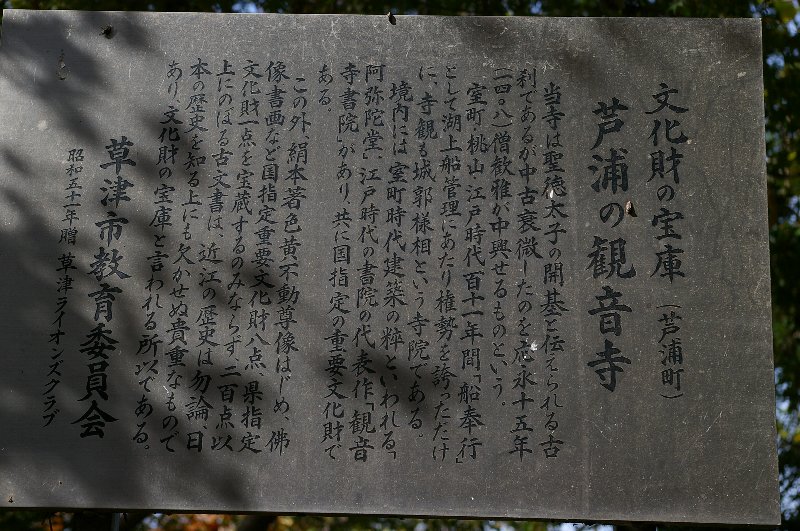 文化財の宝庫（芦浦町）
芦浦の観音寺
当寺は聖徳太子の開基と伝えられる古
刹であるが中古衰微したのを応永十五年
（一四〇八）僧歓雅が中興せるものという。
室町・桃山・江戸時代百十一年間「船奉行」
として湖上船管理にあたり権勢を誇っただけ
に、寺観も城郭様相という寺院である。
境内には室町時代建築の粋といわれる「
阿弥陀堂」、江戸時代の書院の代表作「観音
寺書院」があり、共に国指定の重要文化財で
ある。
この外、絹本著色黄不動尊像はじめ、佛
像書画など国指定重要文化財八点、県指定
文化財一点を宝蔵するのみならず、二百点以
上にのぼる古文書は、近江の歴史は勿論、日
本の歴史を知る上にも欠かせぬ貴重なもので
あり、文化財の宝庫と言われる所以である。
草津市教育委員会
昭和五十一年贈 草津ライオンズクラブ